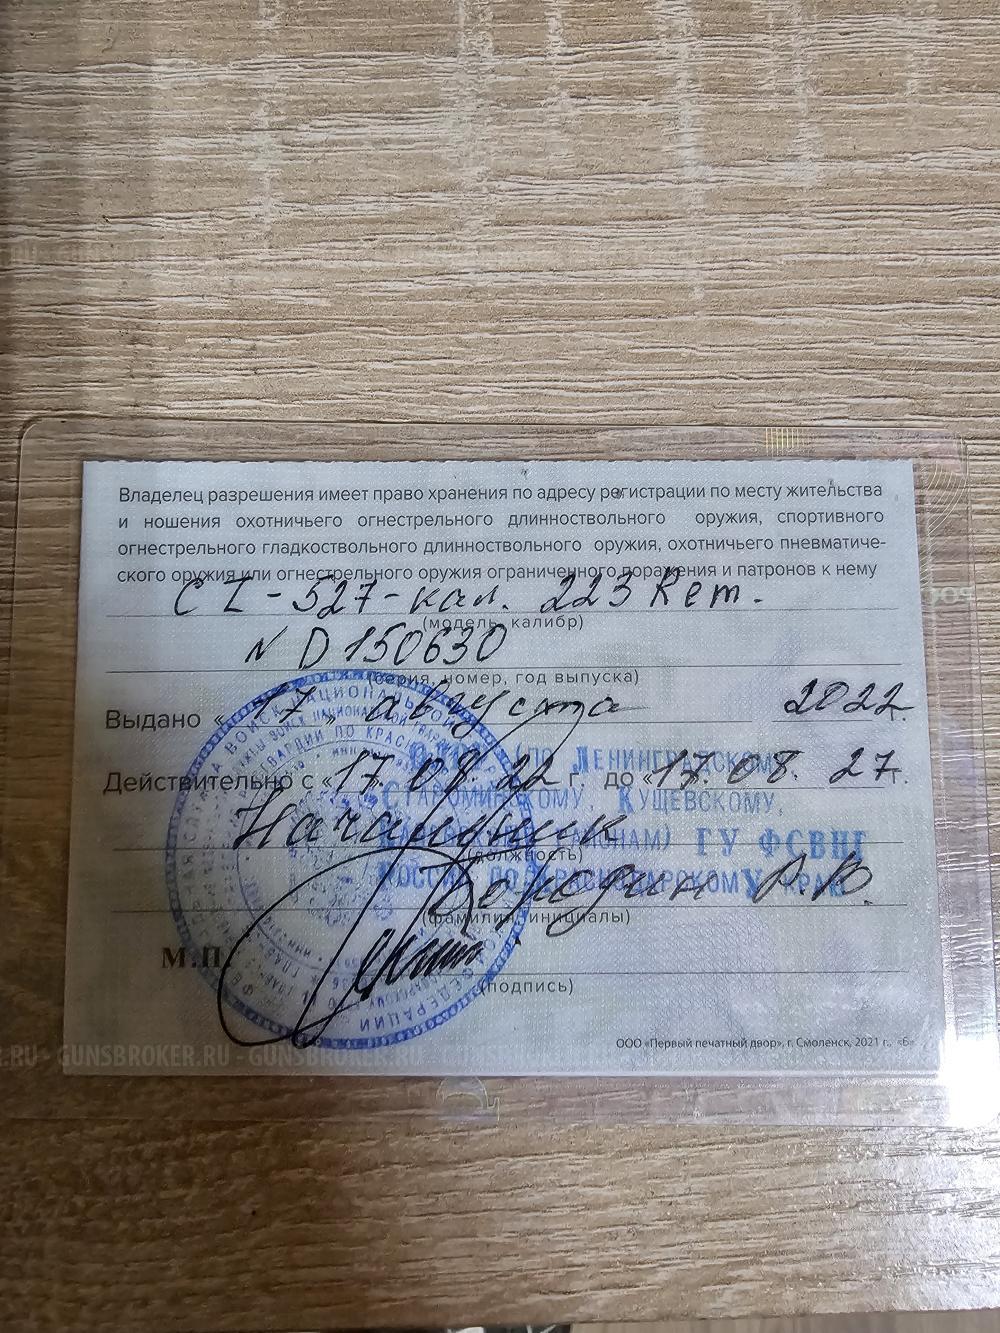 Владелец разрешения имеет право хранения по адресу регистрации по месту жительства
и ношения охотничьего огнестрельного длинноствольного оружия, спортивного
огнестрельного гладкоствольного длинноствольного оружия, охотничьего пневматиче-
ского оружия или огнестрельного оружия ограниченного поражения и патронов к нему
CZ-527-кал. 223 Rem.
(модель, калибр)
N D150630
(серия, номер, год выпуска)
Выдано «17» августа 2022 г.
Действительно с «17. 08. 22 г. до «17. 08. 27 г.
(ПО ЛЕНИНГРАДСКОМУ,
СТАРОМИНСКОМУ, КУЩЕВСКОМУ,
РАЙОНАМ) ГУ ФСВНГ
РОССИИ ПО КРАСНОДАРСКОМУ КРАЮ
Начальник
(должность)
А.В.
(фамилия, инициалы)
М.П.
(подпись)
ООО «Первый печатный двор», г. Смоленск, 2021 г., «Б»
GUNSBROKER.RU - GUNSBROKER.RU - GUNSBROKER.RU - GUNSBROKER.RU